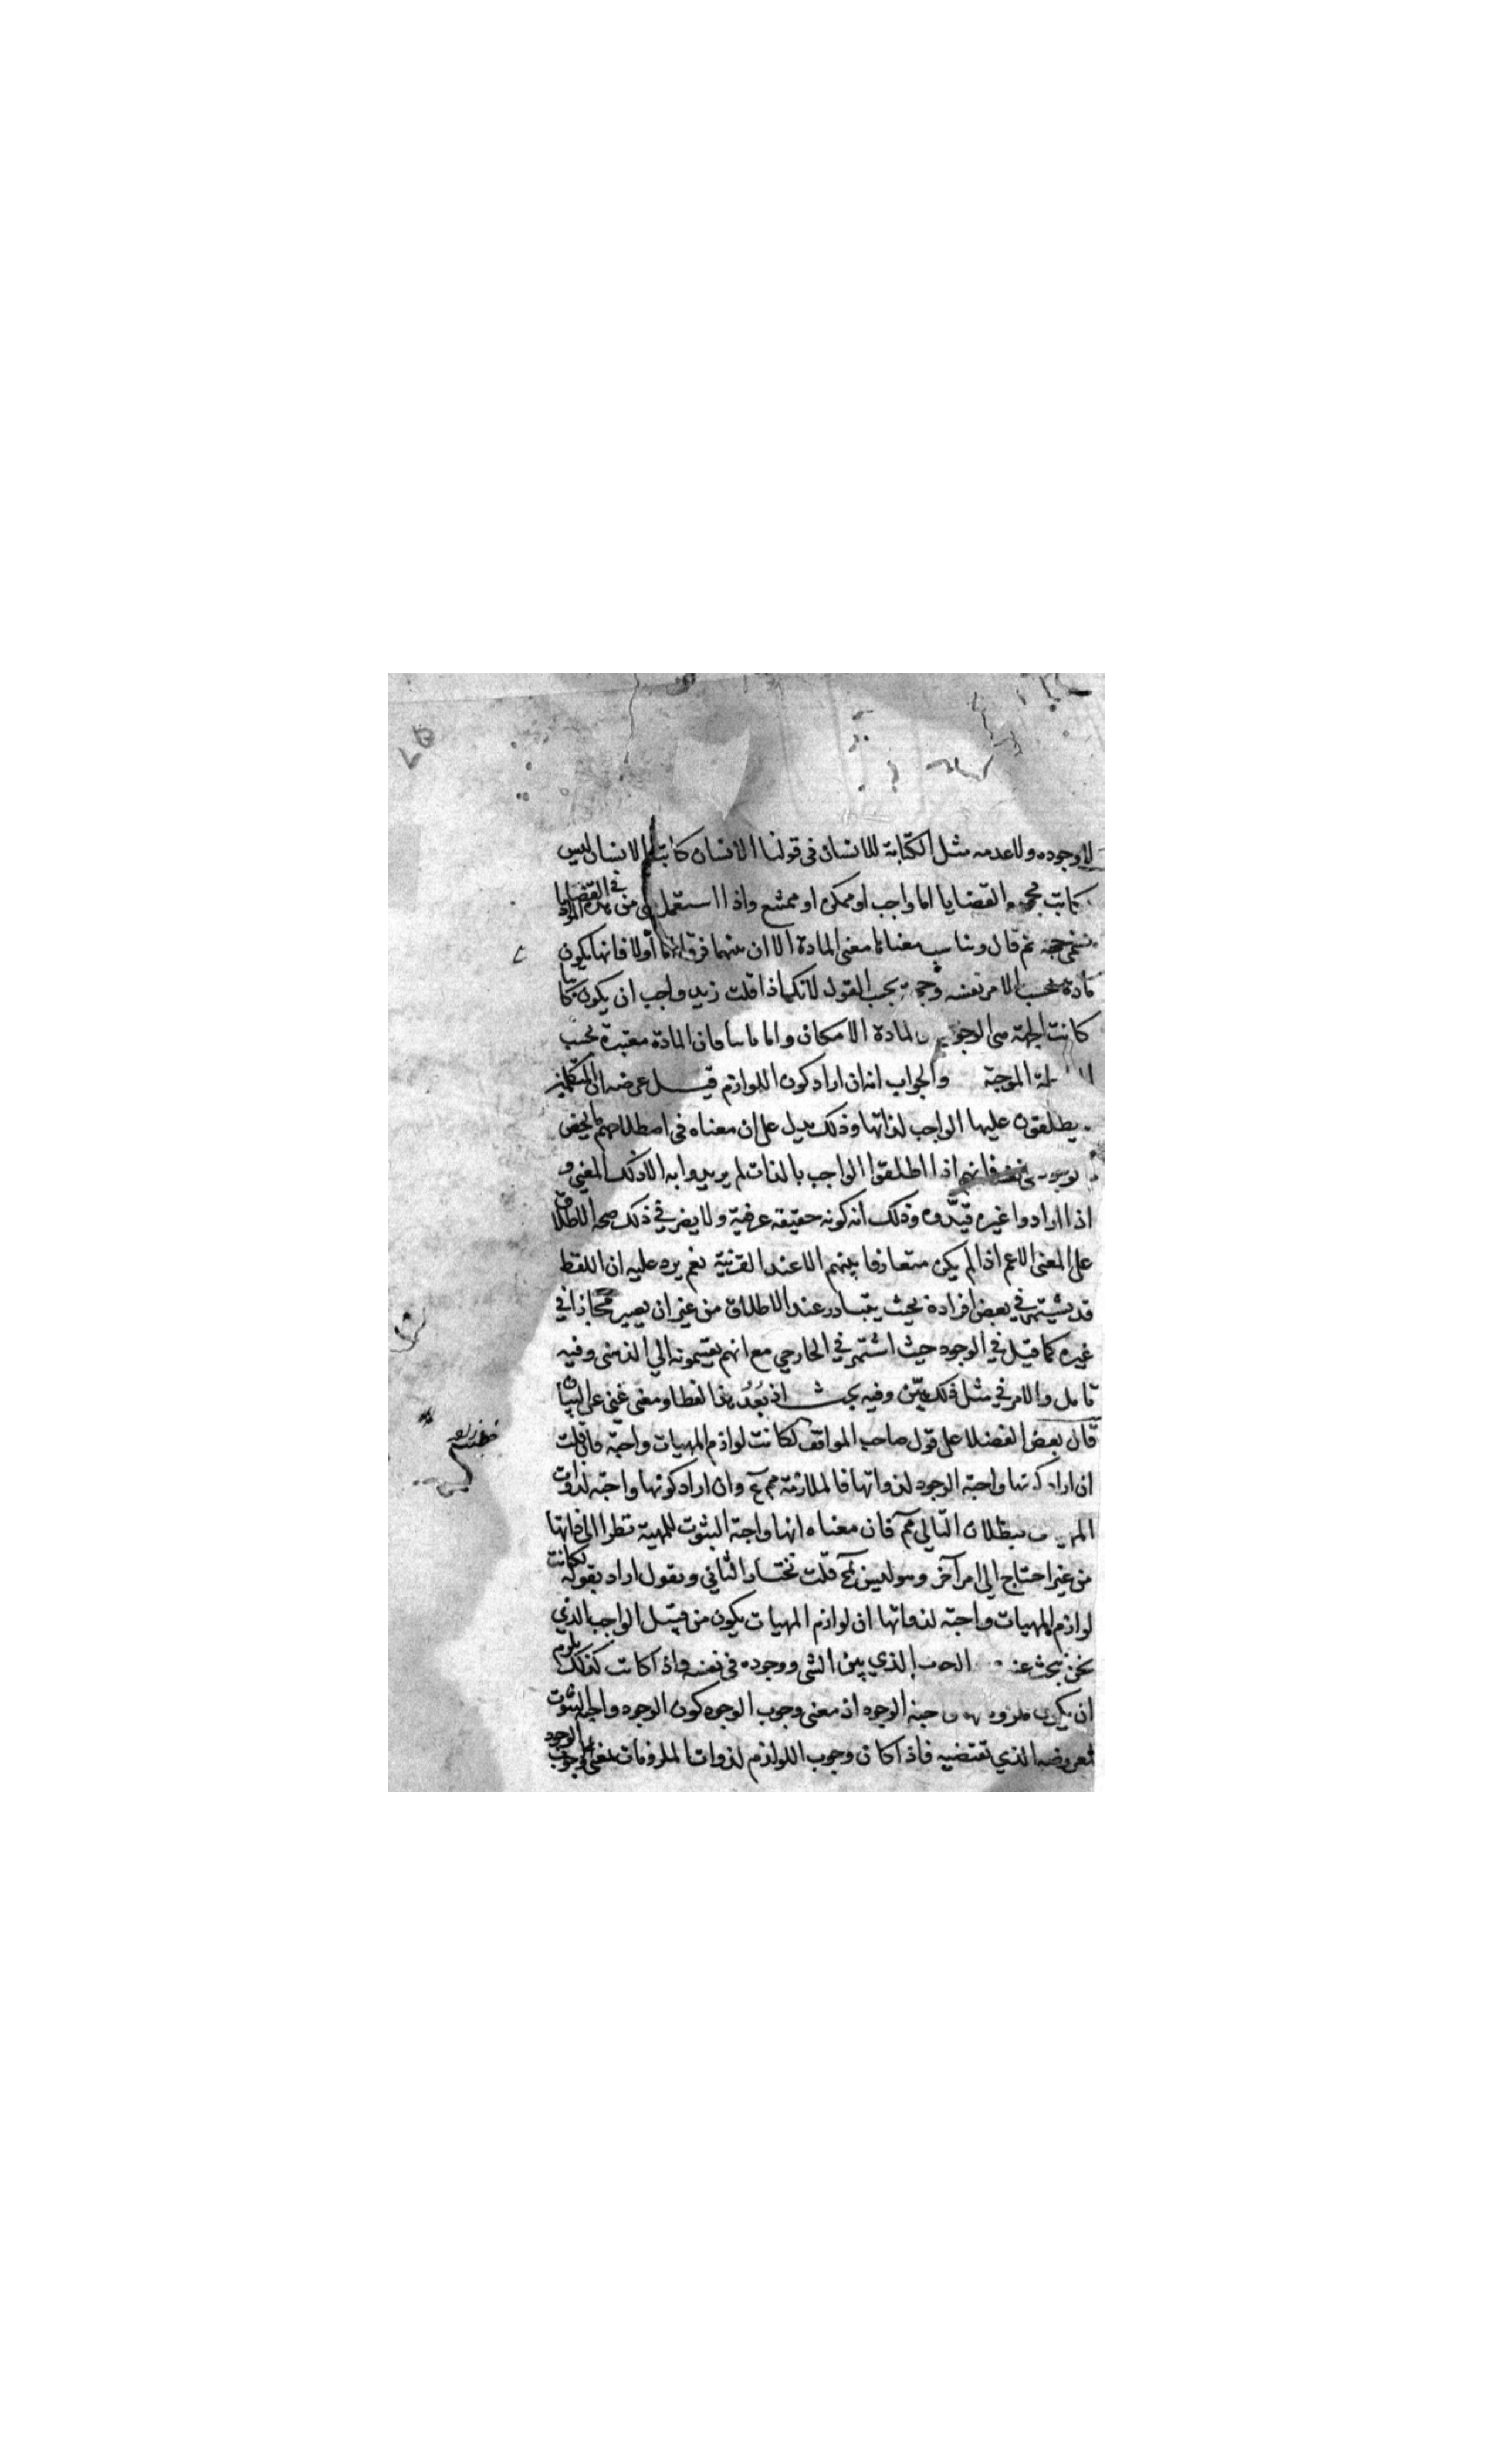 لا وجوده ولا عدمه مثل الكتابة للانسان فى قولنا الانسان كاتب الانسان ليس
بكاتب القضايا اما واجب او ممكن او ممتنع واذا استعمل من هذه المواد فى القضايا
تسمى جهة ثم قال ويناسب معناها معنى المادة الا ان بينهما فرقا اولا فانها يكون
مادة بحسب الامر نفسه بحسب القول لانك اذا قلت زيد واجب ان يكون كاتبا
كانت الجهة هى الوجوب المادة الامكان واما ثانيا فان المادة معتبرة بحسب
الموجة والجواب انه ان اراد كون اللوازم قيل غرضه ان المتكلمين
يطلقون عليها الواجب لذاتها وذلك يدل على ان معناه فى اصطلاحهم
فانهم اذا اطلقوا الواجب بالذات لم يريدوا به الا ذلك المعنى و
اذا ارادوا غيره قيدوه وذلك انه كونه حقيقه عرفية ولا يضر فى ذلك صحة الاطلاق
على المعنى الاعم اذا لم يكن متعارفا بينهم الا عند القرنية نعم يرد عليه ان اللفظ
قد يشتهر فى بعض افراده بحيث يتبادر عند الاطلاق من غير ان يصير مجازا فى
غيره كما قيل فى الوجود حيث اشتهر فى الخارجي مع انهم يقسمونه الي الذهنى وفيه
تامل والامر فى مثل ذلك بيّن وفيه بحث اذ بُعدُ هذا لفظا ومعنى غنى عن البيان
قال بعض الفضلا على قول صاحب المواقف لكانت لوازم المهيات واجبة فان قلت
ان اراد كونها واجبة الوجود لذواتها فالملازمة مم وان اراد كونها واجبة لذوات
المهيات فبطلان التالي مم فان معناه انها واجبة الثبوت للمهية نظرا الى ذاتها
من غير احتياج الي امر آخر وهو ليس بمح قلت نختار الثاني ونقول اراد بقوله لكانت
لوازم المهيات واجبة لذواتها ان لوازم المهيات يكون من قبيل الواجب الذي
نحن نبحث عنه الذي بين الشى ووجوده فى نفسه واذا كانت كذلك يلزم
ان يكون واجبة الوجود اذ معنى وجوب الوجود كون الوجود واجب الثبوت
لمعروضه الذي تقتضيه فاذا كان وجوب اللوازم لذوات الملزومات بمعنى وجوب الوجود